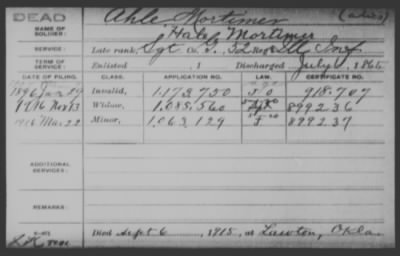 DEAD
Ahle Mortimer (alias)
NAME OF SOLDIER: Hale, Mortimer
SERVICE: Late rank, Sgt Co. I, 32 Reg't Ill Inf
TERM OF SERVICE: Enlisted , 1 Discharged July , 1865
DATE OF FILING. CLASS. APPLICATION NO. LAW. CERTIFICATE NO.
1896 Jan 29 Invalid, 1.173.750 918.707
1916 Nov 13 Widow, 1.085.560 899236
1916 Mar. 22 Minor, 1.063.129 899237
ADDITIONAL SERVICES:
REMARKS:
Died Sept 6 , 1915, at Lawton, Okla.